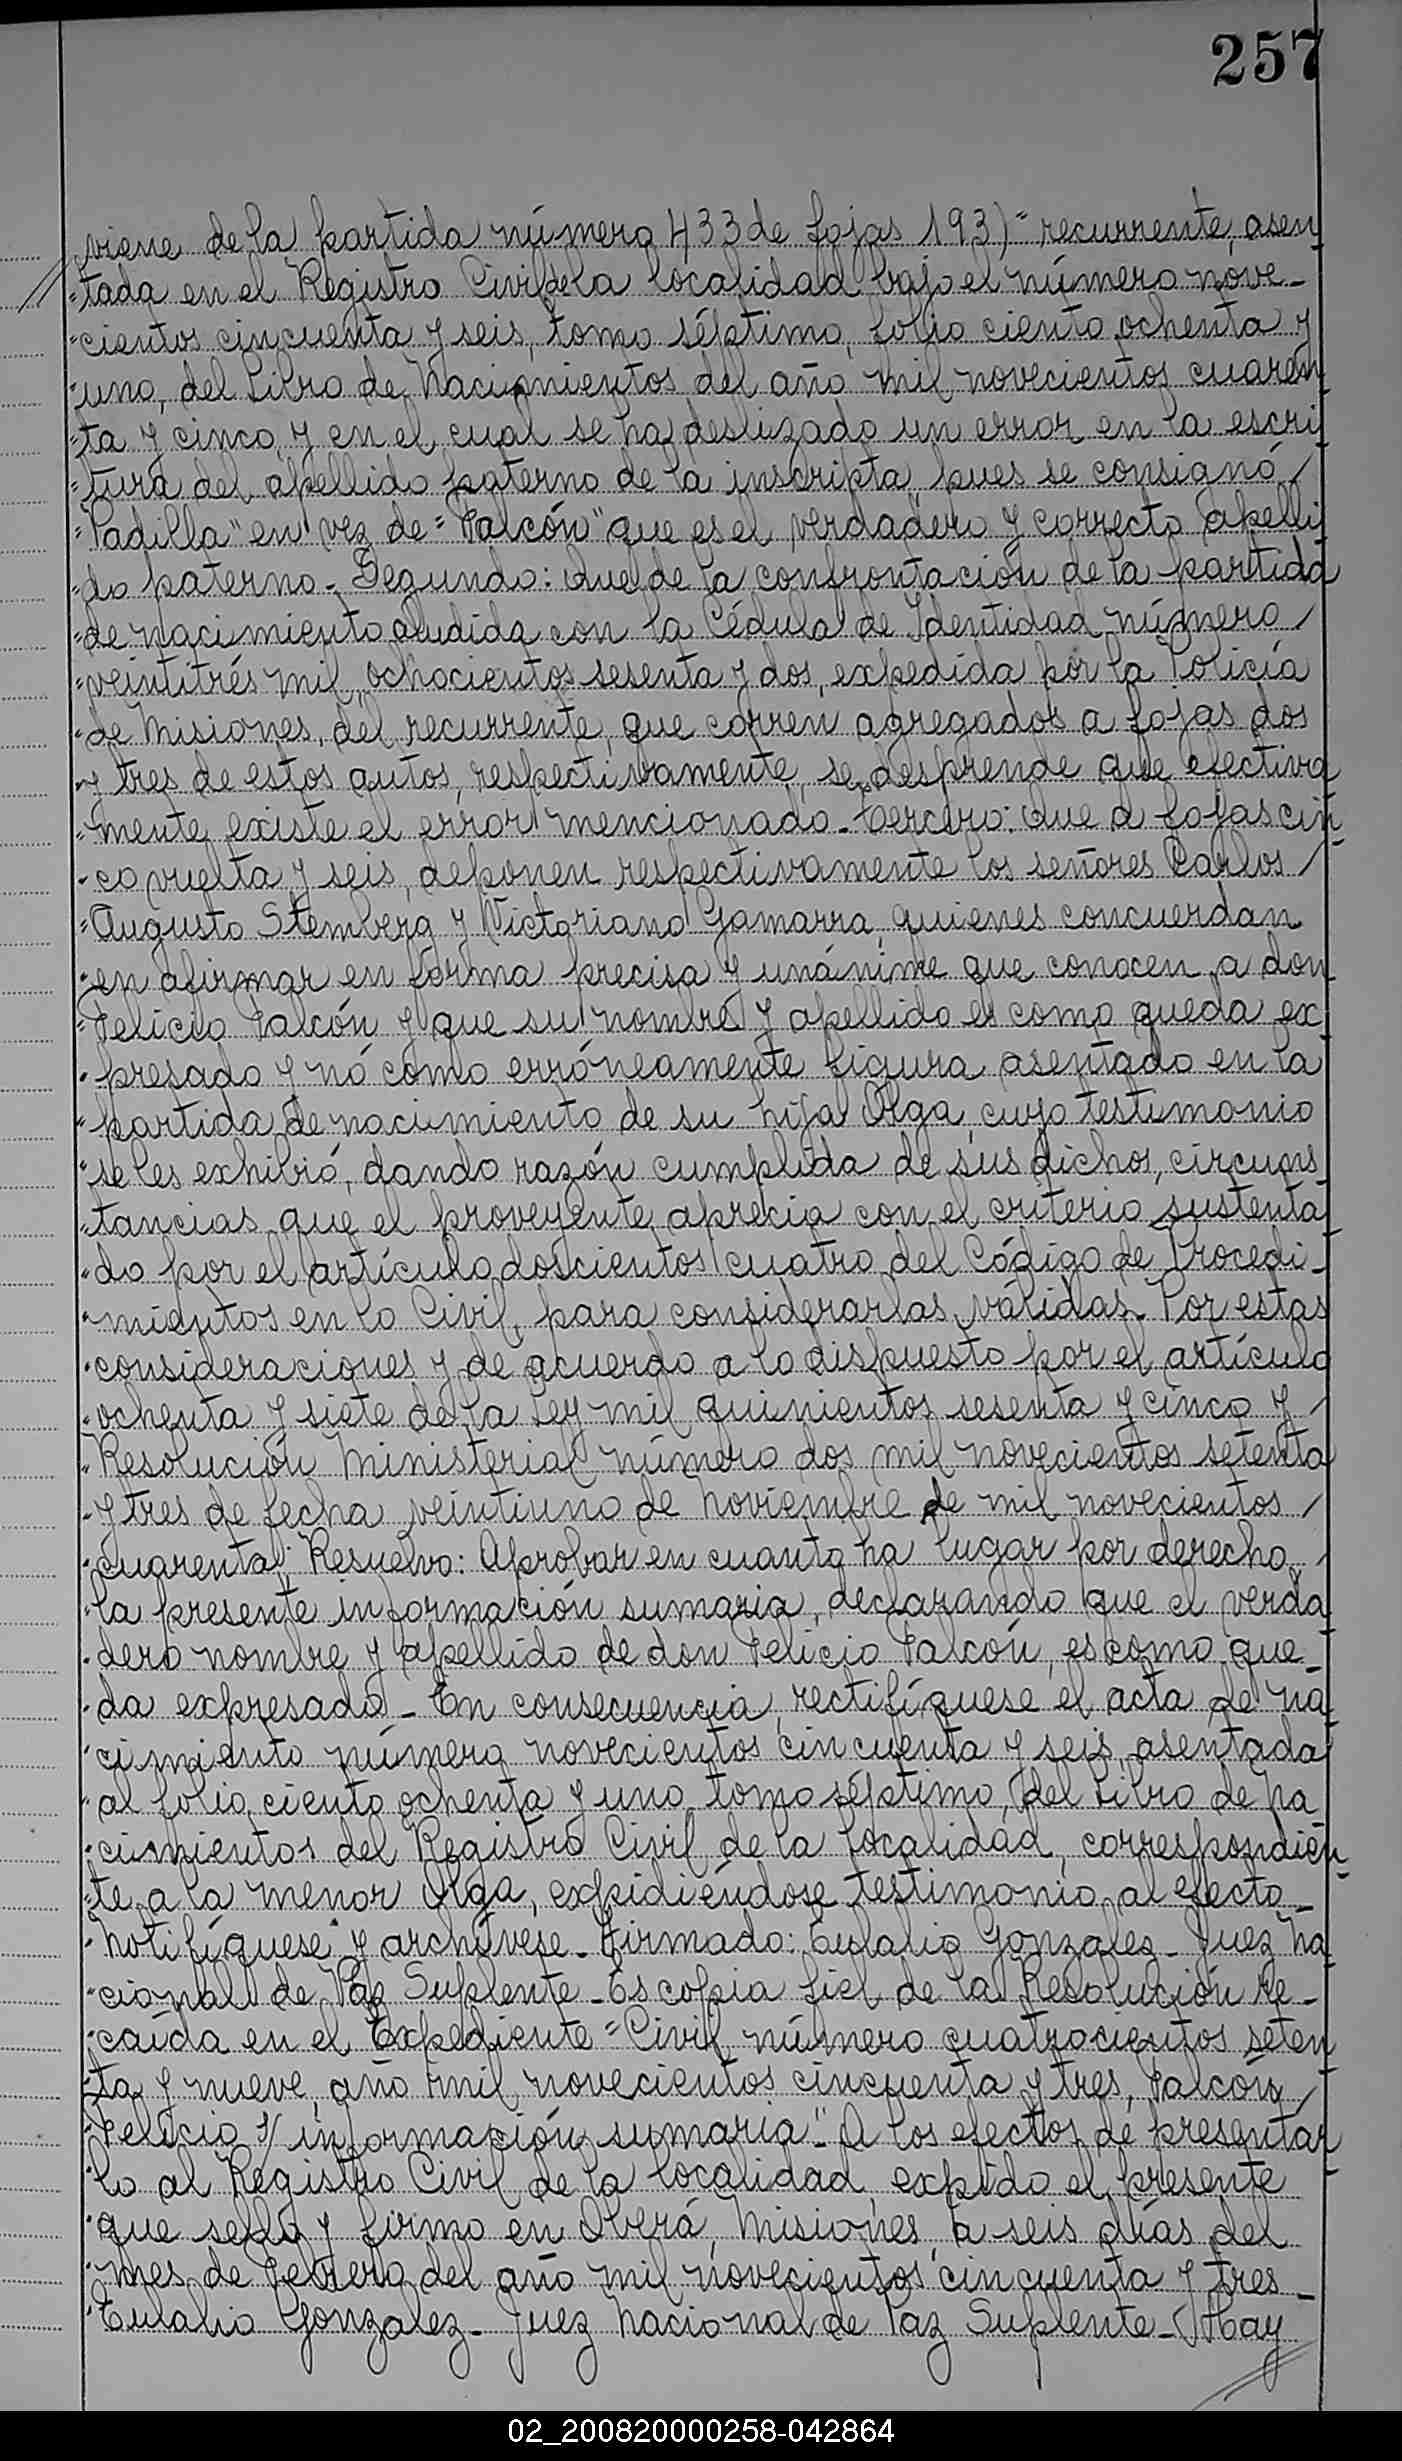 257
viene de la partida número 433 de fojas 193)" recurrente, asen
"tada en el Registro Civil de la localidad bajo el número nove-
"cientos cincuenta y seis, tomo séptimo, folio ciento ochenta y
"uno, del Libro de Nacimientos del año mil novecientos cuaren
"ta y cinco, y en el cual se ha deslizado un error en la escri
"tura del apellido paterno de la inscripta, pues se consignó /
"Padilla" en vez de "Falcón" que es el verdadero y correcto apelli
"do paterno.- Segundo: Que de la confrontación de la partida
"de nacimiento aludida con la Cédula de Identidad número /
"veintitrés mil, ochocientos sesenta y dos, expedida por la Policía
"de Misiones, del recurrente, que corren agregados a fojas dos
"y tres de estos autos, respectivamente, se desprende que efectiva
"mente existe el error mencionado.- Tercero: Que a fojas cin
"co vuelta y seis, deponen respectivamente los señores Carlos /
"Augusto Stemberg y Victoriano Gamarra, quienes concuerdan
"en afirmar en forma precisa y unánime que conocen a don
"Felicio Falcón y que su nombre y apellido es como queda ex
"presado y nó como erróneamente figura asentado en la
"partida de nacimiento de su hija Olga, cuyo testimonio
"se les exhibió, dando razón cumplida de sus dichos, circuns
"tancias que el proveyente aprecia con el criterio sustenta
"do por el artículo doscientos cuatro del Código de Procedi-
"mientos en lo Civil, para considerarlas válidas.- Por estas
"consideraciones y de acuerdo a lo dispuesto por el artículo
"ochenta y siete de la Ley mil quinientos sesenta y cinco y /
"Resolución Ministerial número dos mil novecientos setenta
"y tres de fecha veintiuno de Noviembre de mil novecientos /
"cuarenta; Resuelvo: Aprobar en cuanto ha lugar por derecho, /
"la presente información sumaria, declarando que el verda
"dero nombre y apellido de don Felicio Falcón, es como que-
"da expresado.- En consecuencia, rectifíquese el acta de na
"cimiento número novecientos cincuenta y seis, asentada
"al folio ciento ochenta y uno, tomo séptimo, del Libro de Na
"cimientos del Registro Civil de la localidad, correspondien
"te a la menor Olga, expidiéndose testimonio al efecto.-
"Notifíquese y archívese.- Firmado: Eulalio Gonzalez.- Juez Na
"cional de Paz Suplente.- Es copia fiel de la Resolución re-
"caída en el Expediente "Civil número cuatrocientos seten
"ta y nueve, año mil novecientos cincuenta y tres, Falcón, /
"Felicio s/ información sumaria".- A los efectos de presentar
"lo al Registro Civil de la localidad, expido el presente
"que sello y firmo en Oberá, Misiones, a seis días del
"mes de Febrero del año mil novecientos cincuenta y tres.-
"Eulalio Gonzalez.- Juez Nacional de Paz Suplente.- (Hay
02_200820000258-042864